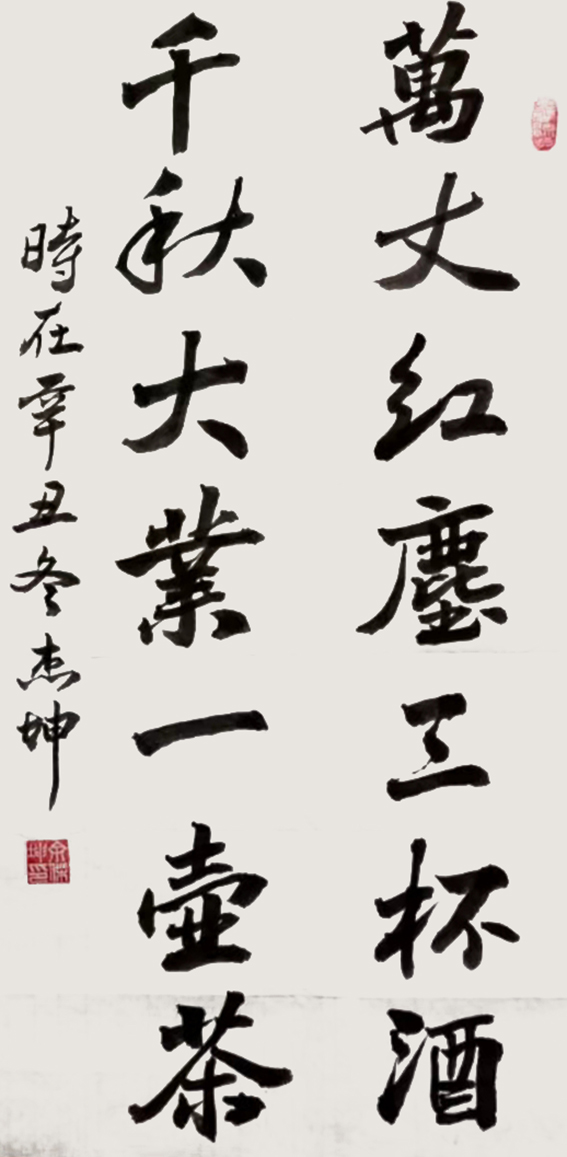 萬丈红塵三杯酒
千秋大業一壺茶
時在辛丑冬杰坤